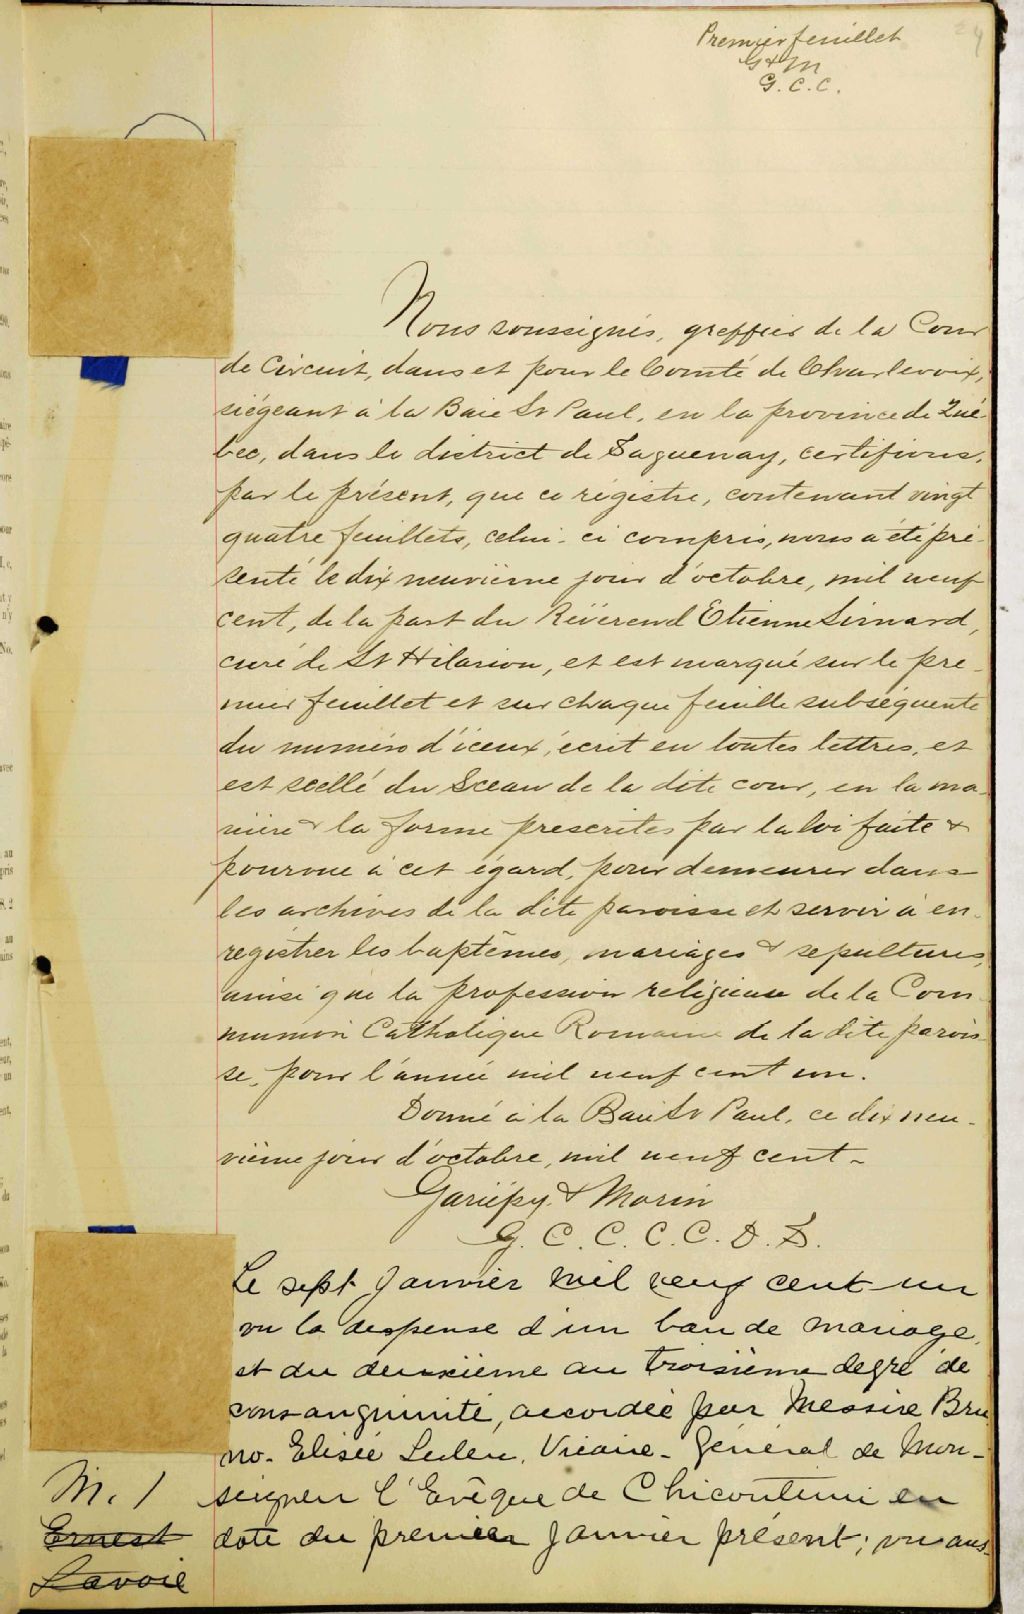 Premier feuillet
G & M
G. C. C.
Nous soussignés, greffier de la Cour
de Circuit, dans et pour le Comté de Charlevoix,
siégeant à la Baie St Paul, en la province de Qué-
bec, dans le district de Saguenay, certifions,
par le présent, que ce régistre, contenant vingt
quatre feuillets, celui-ci compris, nous a été pré-
senté le dix neuvième jour d'octobre, mil neuf
cent, de la part du Révérend Etienne Simard,
curé de St Hilarion, et est marqué sur le pre-
mier feuillet et sur chaque feuille subséquente
du numéro d'iceux, écrit en toutes lettres, et
est scellé du Sceau de la dite cour, en la ma-
nière & la forme prescrites par la loi faite &
pourvue à cet égard, pour demeurer dans
les archives de la dite paroisse et servir à en-
registrer les baptêmes, mariages & sepultures,
ainsi que la profession religieuse de la Com-
munion Catholique Romaine de la dite parois-
se, pour l'année mil neuf cent un.
Donné à la Baie St Paul, ce dix neu-
vième jour d'octobre, mil neuf cent-
Gariépy & Morin
G. C. C. C. C. D. S.
Le sept Janvier mil neuf cent un
vu la dispense d'un ban de mariage,
et du deuxième au troisième degré de
consanguinité, accordée par Messire Bru
no-Elisée Leclerc, Vicaire-Général de Mon-
seigneur l'Evêque de Chicoutimi en
M. 1
date du premier Janvier présent; vu aus-
Ernest
Lavoie